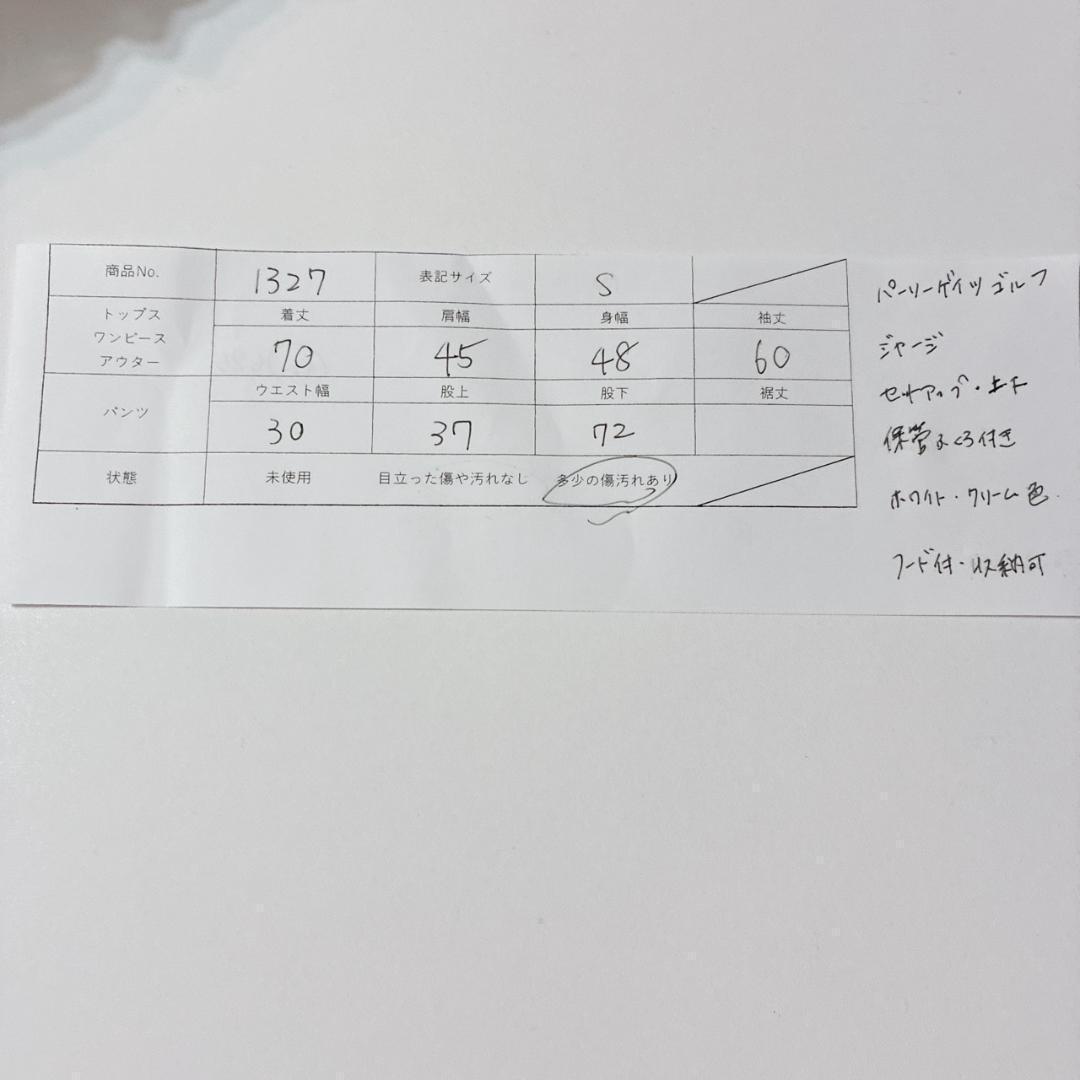 商品No. 1327 表記サイズ S
トップス ワンピース アウター
着丈 肩幅 身幅 袖丈
70 45 48 60
パンツ
ウエスト幅 股上 股下 裾丈
30 37 72
状態 未使用 目立った傷や汚れなし 多少の傷汚れあり
パーリーゲイツ ゴルフ
ジャージ
セットアップ・上下
保管ふくろ付き
ホワイト・クリーム色
フード付・収納可